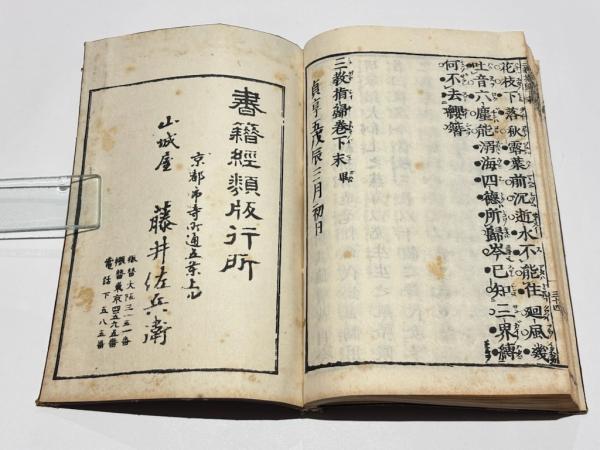 花枝下落秋露葉前沉逝水不能住廻風幾
吐音六塵能溺海四徳所歸岑已知三界縛
何不去纓簪
三教指歸巻下末 畢
貞享五戊辰三月初日
書籍經類版行所
京都市寺町通五条上ル
山城屋 藤井佐兵衛
振替大阪三一五一番
振替東京四五九五番
電話下五八五番